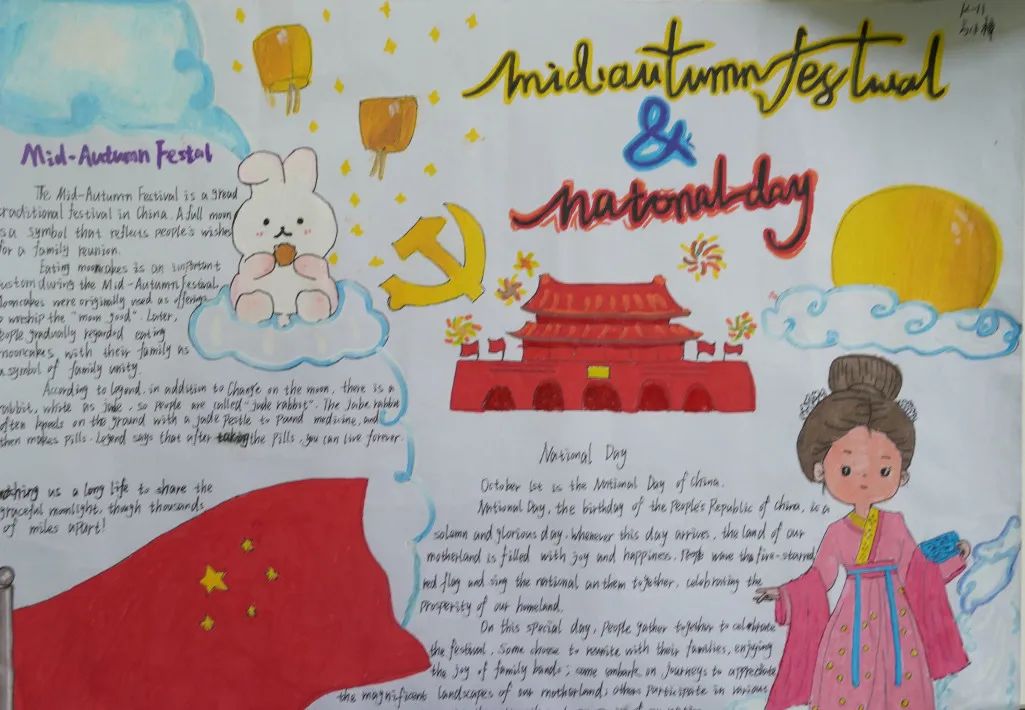 mid-autumn festival
&
natonal-day
Mid-Autumn Festal
The Mid-Autumn Festival is a
traditional festival in China. A full moon
is a symbol that reflects people's wishes
for a family reunion.
Eating mooncakes is an important
custom during the Mid-Autumn Festival.
Mooncakes were originally used as offerings
to worship the "moon good". Later,
people gradually regarded eating
mooncakes, with their family as
a symbol of family unity.
According to legend, in addition to Chang'e on the moon, there is a
rabbit, white as jade, so people are called "jade rabbit". The Jabe rabbit
often on the ground with a jade pestle to pound medicine, and
then makes pills. Legend says that after taking the pills, you can live forever.
us a long life to share the
graceful moonlight, though thousands
of miles apart!
National Day
October 1st is the National Day of China.
National Day, the birthday of the People's Republic of China, is a
solemn and glorious day. Whenever this day arrives, the land of our
motherland is filled with joy and happiness. People wave the five-starred
red flag and sing the national anthem together, celebrating the
prosperity of our homeland.
On this special day, people gather together to celebrate
the festival. Some choose to reunite with their families, enjoying
the joy of family bonds; some embark on journeys to appreciate
the magnificent landscapes of our motherland; others participate in various